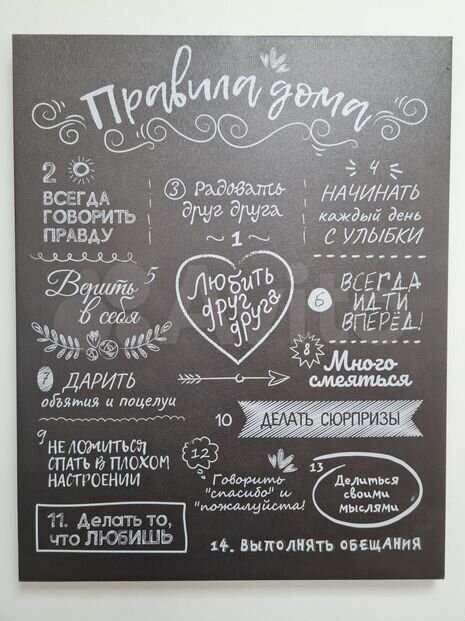 Правила дома
2
ВСЕГДА
ГОВОРИТЬ
ПРАВДУ
3 Радовать
друг друга
4
НАЧИНАТЬ
каждый день
С УЛЫБКИ
1
Любить
друг
друга
Верить 5
в себя
6
ВСЕГДА
ИДТИ
ВПЕРЁД!
7 ДАРИТЬ
объятия и поцелуи
8
Много
смеяться
9
НЕ ЛОЖИТЬСЯ
СПАТЬ В ПЛОХОМ
НАСТРОЕНИИ
10 ДЕЛАТЬ СЮРПРИЗЫ
11. Делать то,
что ЛЮБИШЬ
12
Говорить
"спасибо" и
"пожалуйста!
13
Делиться
своими
мыслями
14. ВЫПОЛНЯТЬ ОБЕЩАНИЯ